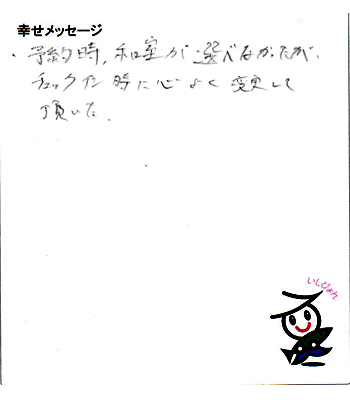 幸せメッセージ
・予約時、和室が選べなかったが、
チェックイン時に心よく変更して
頂いた。
いしぴょん